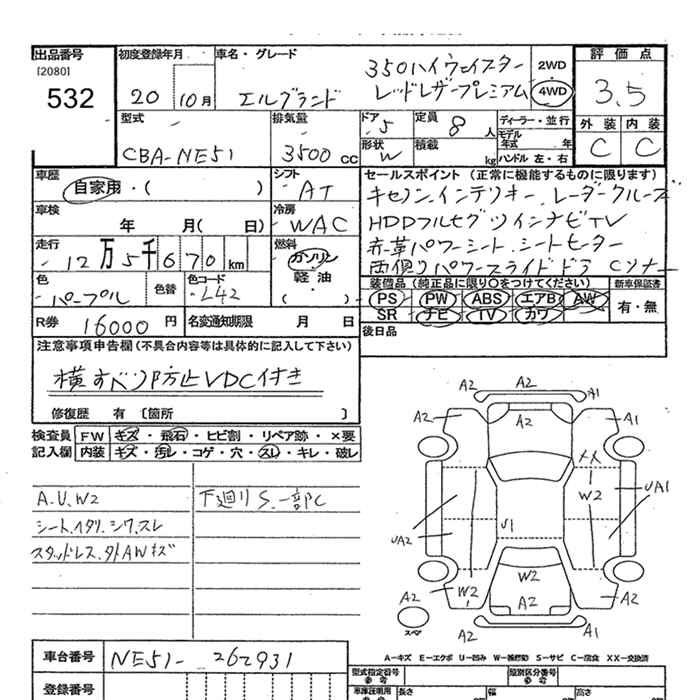 出品番号
[2080]
532
初度登録年月
20 10月
車名・グレード
エルグランド
350ハイウェイスター
レッドレザープレミアム
2WD
4WD
評価点
3.5
外装 内装
C C
型式
CBA-NE51
排気量
3500 CC
ドア
5
定員
8 人
形状
W
積載
kg
ディーラー・並行
モデル年式 年
ハンドル 左・右
車歴
自家用・( )
シフト
AT
車検
年 月( 日)
冷房
WAC
走行
12万5千670km
燃料
ガソリン
軽油
( )
色
パープル
色替
色コード
L42
R券
16000円
名変通知期限 月 日
セールスポイント(正常に機能するものに限ります)
キセノン.インテリキー.レーダークルーズ
HDDフルセグツインナビTV
赤革パワーシート.シートヒーター
両側パワースライドドア Cソナー
装備品(純正品に限り○をつけてください)
PS PW ABS エアB AW
SR ナビ TV カワ
新車保証書
有・無
後日品
注意事項申告欄(不具合内容等は具体的に記入して下さい)
横すべり防止VDC付き
修復歴 有 〔箇所 〕
検査員記入欄
FW キズ・飛石・ヒビ割・リペア跡・×要
内装 キズ・汚レ・コゲ・穴・スレ・キレ・破レ
A.U.W2
シート.イタリ.シワ.スレ
スタッドレス.外AWキズ
下廻りS.一部C
A2 A2 A1
A2 A1
XX
W2
UA1
UA2
U1
W2
W2
A2 A2 A2
A2 A1
スペア
A-キズ E-エクボ U-凹み W-補修跡 S-サビ C-腐食 XX-交換済
車台番号
NE51-262931
登録番号
型式指定番号
参考
類別区分番号
参考
車庫証明用
参考
長さ
幅
高さ